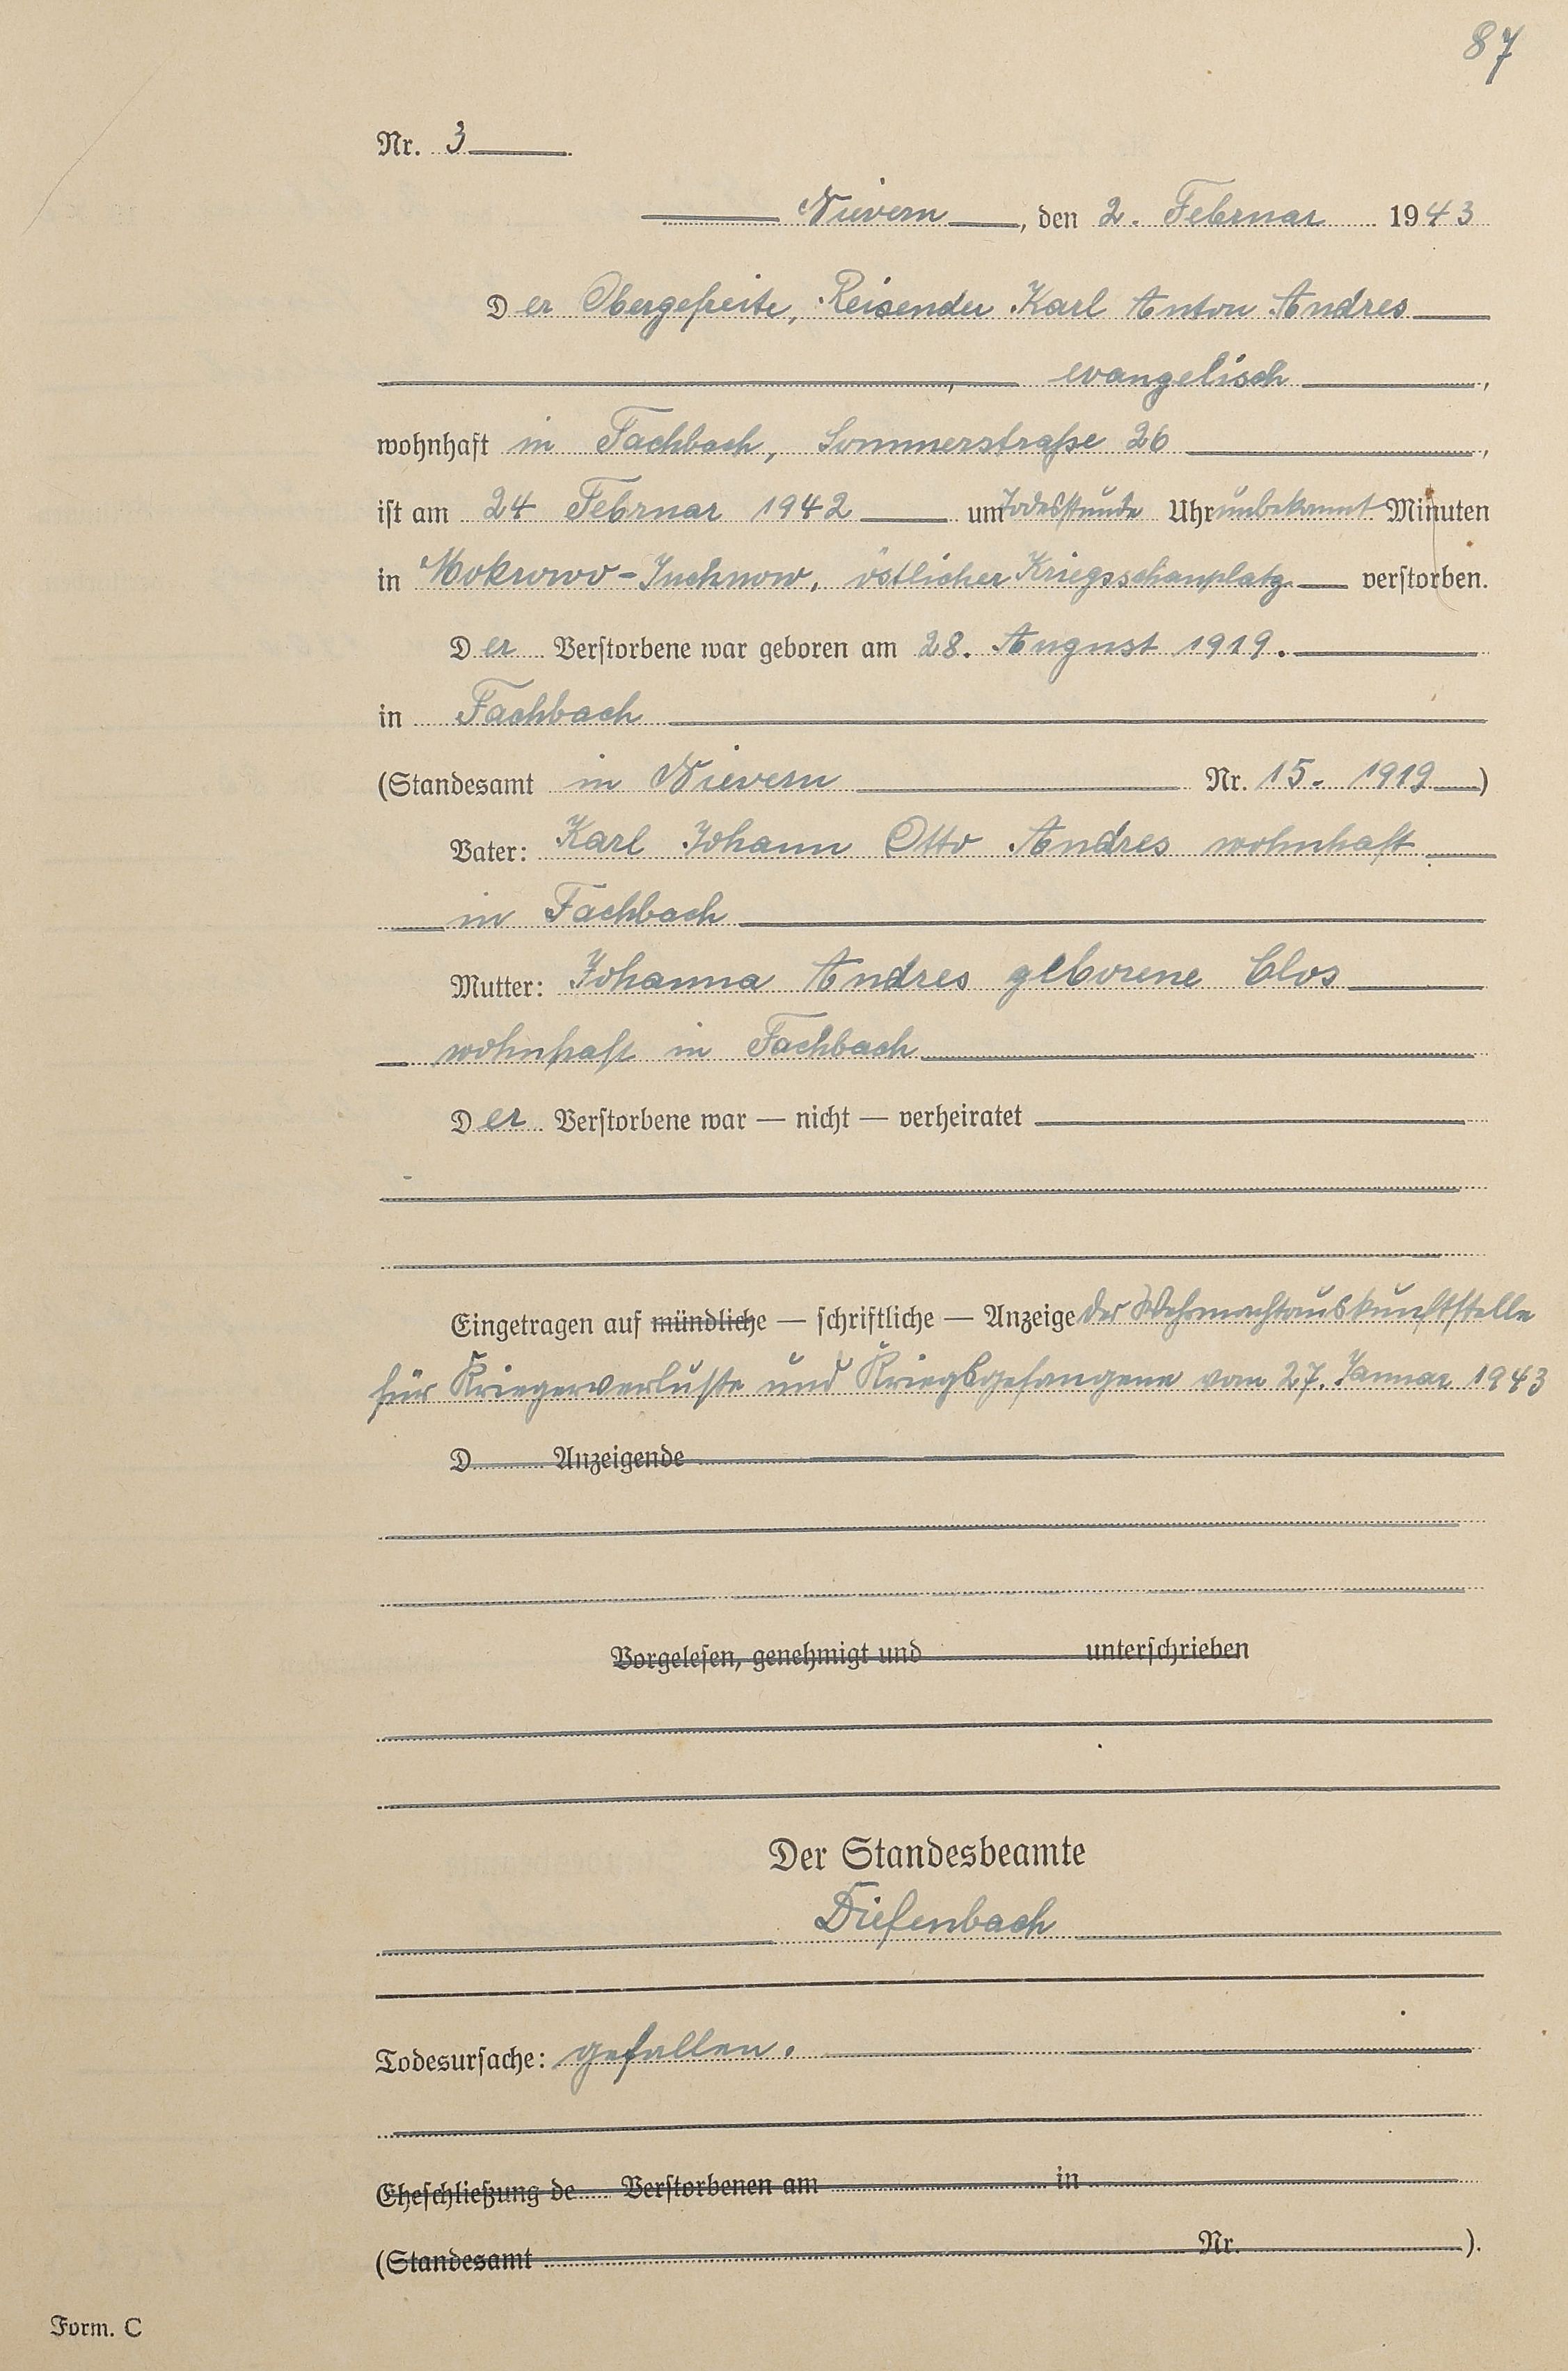 87
Nr. 3
Nievern, den 2. Februar 1943
Der Obergefreite, Reisender Karl Anton Andres
, evangelisch,
wohnhaft in Fachbach, Sommerstraße 26,
ist am 24 Februar 1942 um Todesstunde Uhr unbekannt Minuten
in Mokrowo-Juchnow, östlicher Kriegsschauplatz verstorben.
Der Verstorbene war geboren am 28. August 1919.
in Fachbach
(Standesamt in Nievern Nr. 15. 1919)
Vater: Karl Johann Otto Andres wohnhaft
in Fachbach
Mutter: Johanna Andres geborene Clos
wohnhaft in Fachbach
Der Verstorbene war — nicht — verheiratet
Eingetragen auf mündliche — schriftliche — Anzeige der Wehrmachtauskunftstelle
für Kriegerverluste und Kriegsgefangene vom 27. Januar 1943
D Anzeigende
Vorgelesen, genehmigt und unterschrieben
Der Standesbeamte
Diefenbach
Todesursache: gefallen.
Eheschließung de Verstorbenen am in
(Standesamt Nr. ).
Form. C